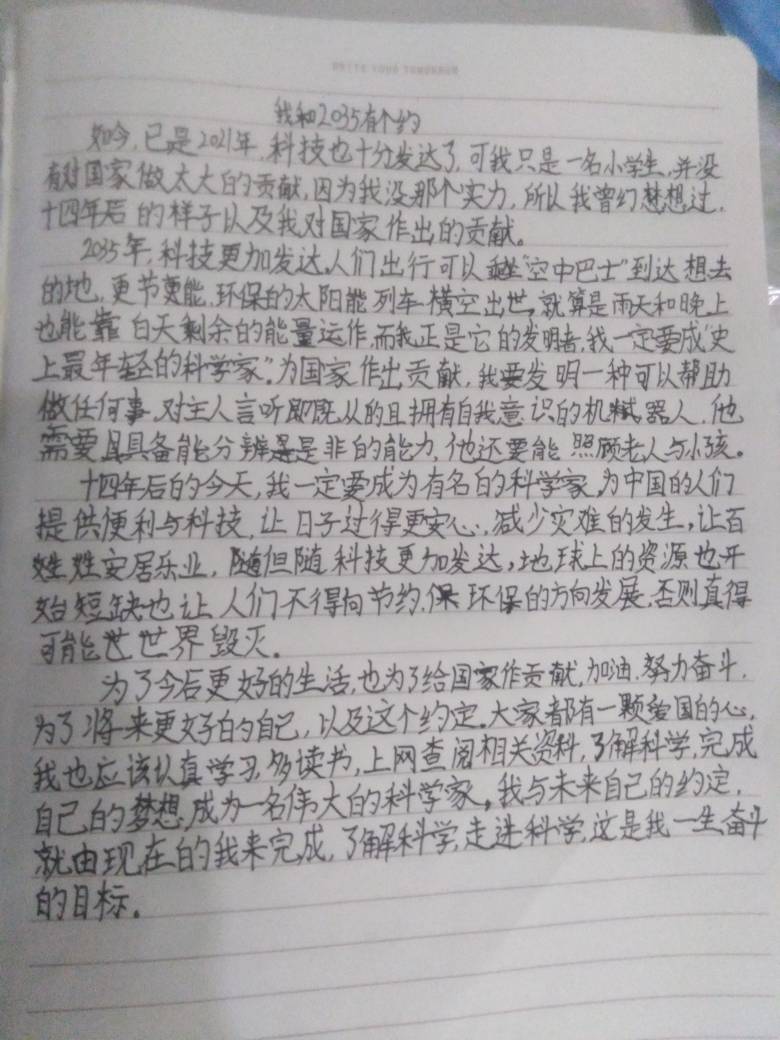 我和2035有个约
如今,已是2021年,科技也十分发达了,可我只是一名小学生,并没
有对国家做太大的贡献,因为我没那个实力,所以我曾幻想想过,
十四年后的样子以及我对国家作出的贡献。
2035年,科技更加发达,人们出行可以乘坐“空中巴士”到达想去
的地,更节更能,环保的太阳能列车横空出世,就算是雨天和晚上
也能靠白天剩余的能量运作,而我正是它的发明者,我一定要成“史
上最年轻的科学家”。为国家作出贡献,我要发明一种可以帮助
做任何事,对主人言听即既从的且拥有自我意识的机器人,他
需要具备能分辨是是非的能力,他还要能照顾老人与小孩。
十四年后的今天,我一定要成为有名的科学家,为中国的人们
提供便利与科技,让日子过得更安心,减少灾难的发生,让百
姓姓安居乐业,随但随科技更加发达,地球上的资源也开
始短缺也让人们不得向节约,保环保的方向发展,否则真得
可能世世界毁灭。
为了今后更好的生活,也为了给国家作贡献,加油,努力奋斗,
为了将来更好的自己,以及这个约定,大家都有一颗爱国的心,
我也应该认真学习,多读书,上网查阅相关资料,了解科学,完成
自己的梦想,成为一名伟大的科学家,我与未来自己的约定,
就由现在的我来完成,了解科学,走进科学,这是我一生奋斗
的目标。